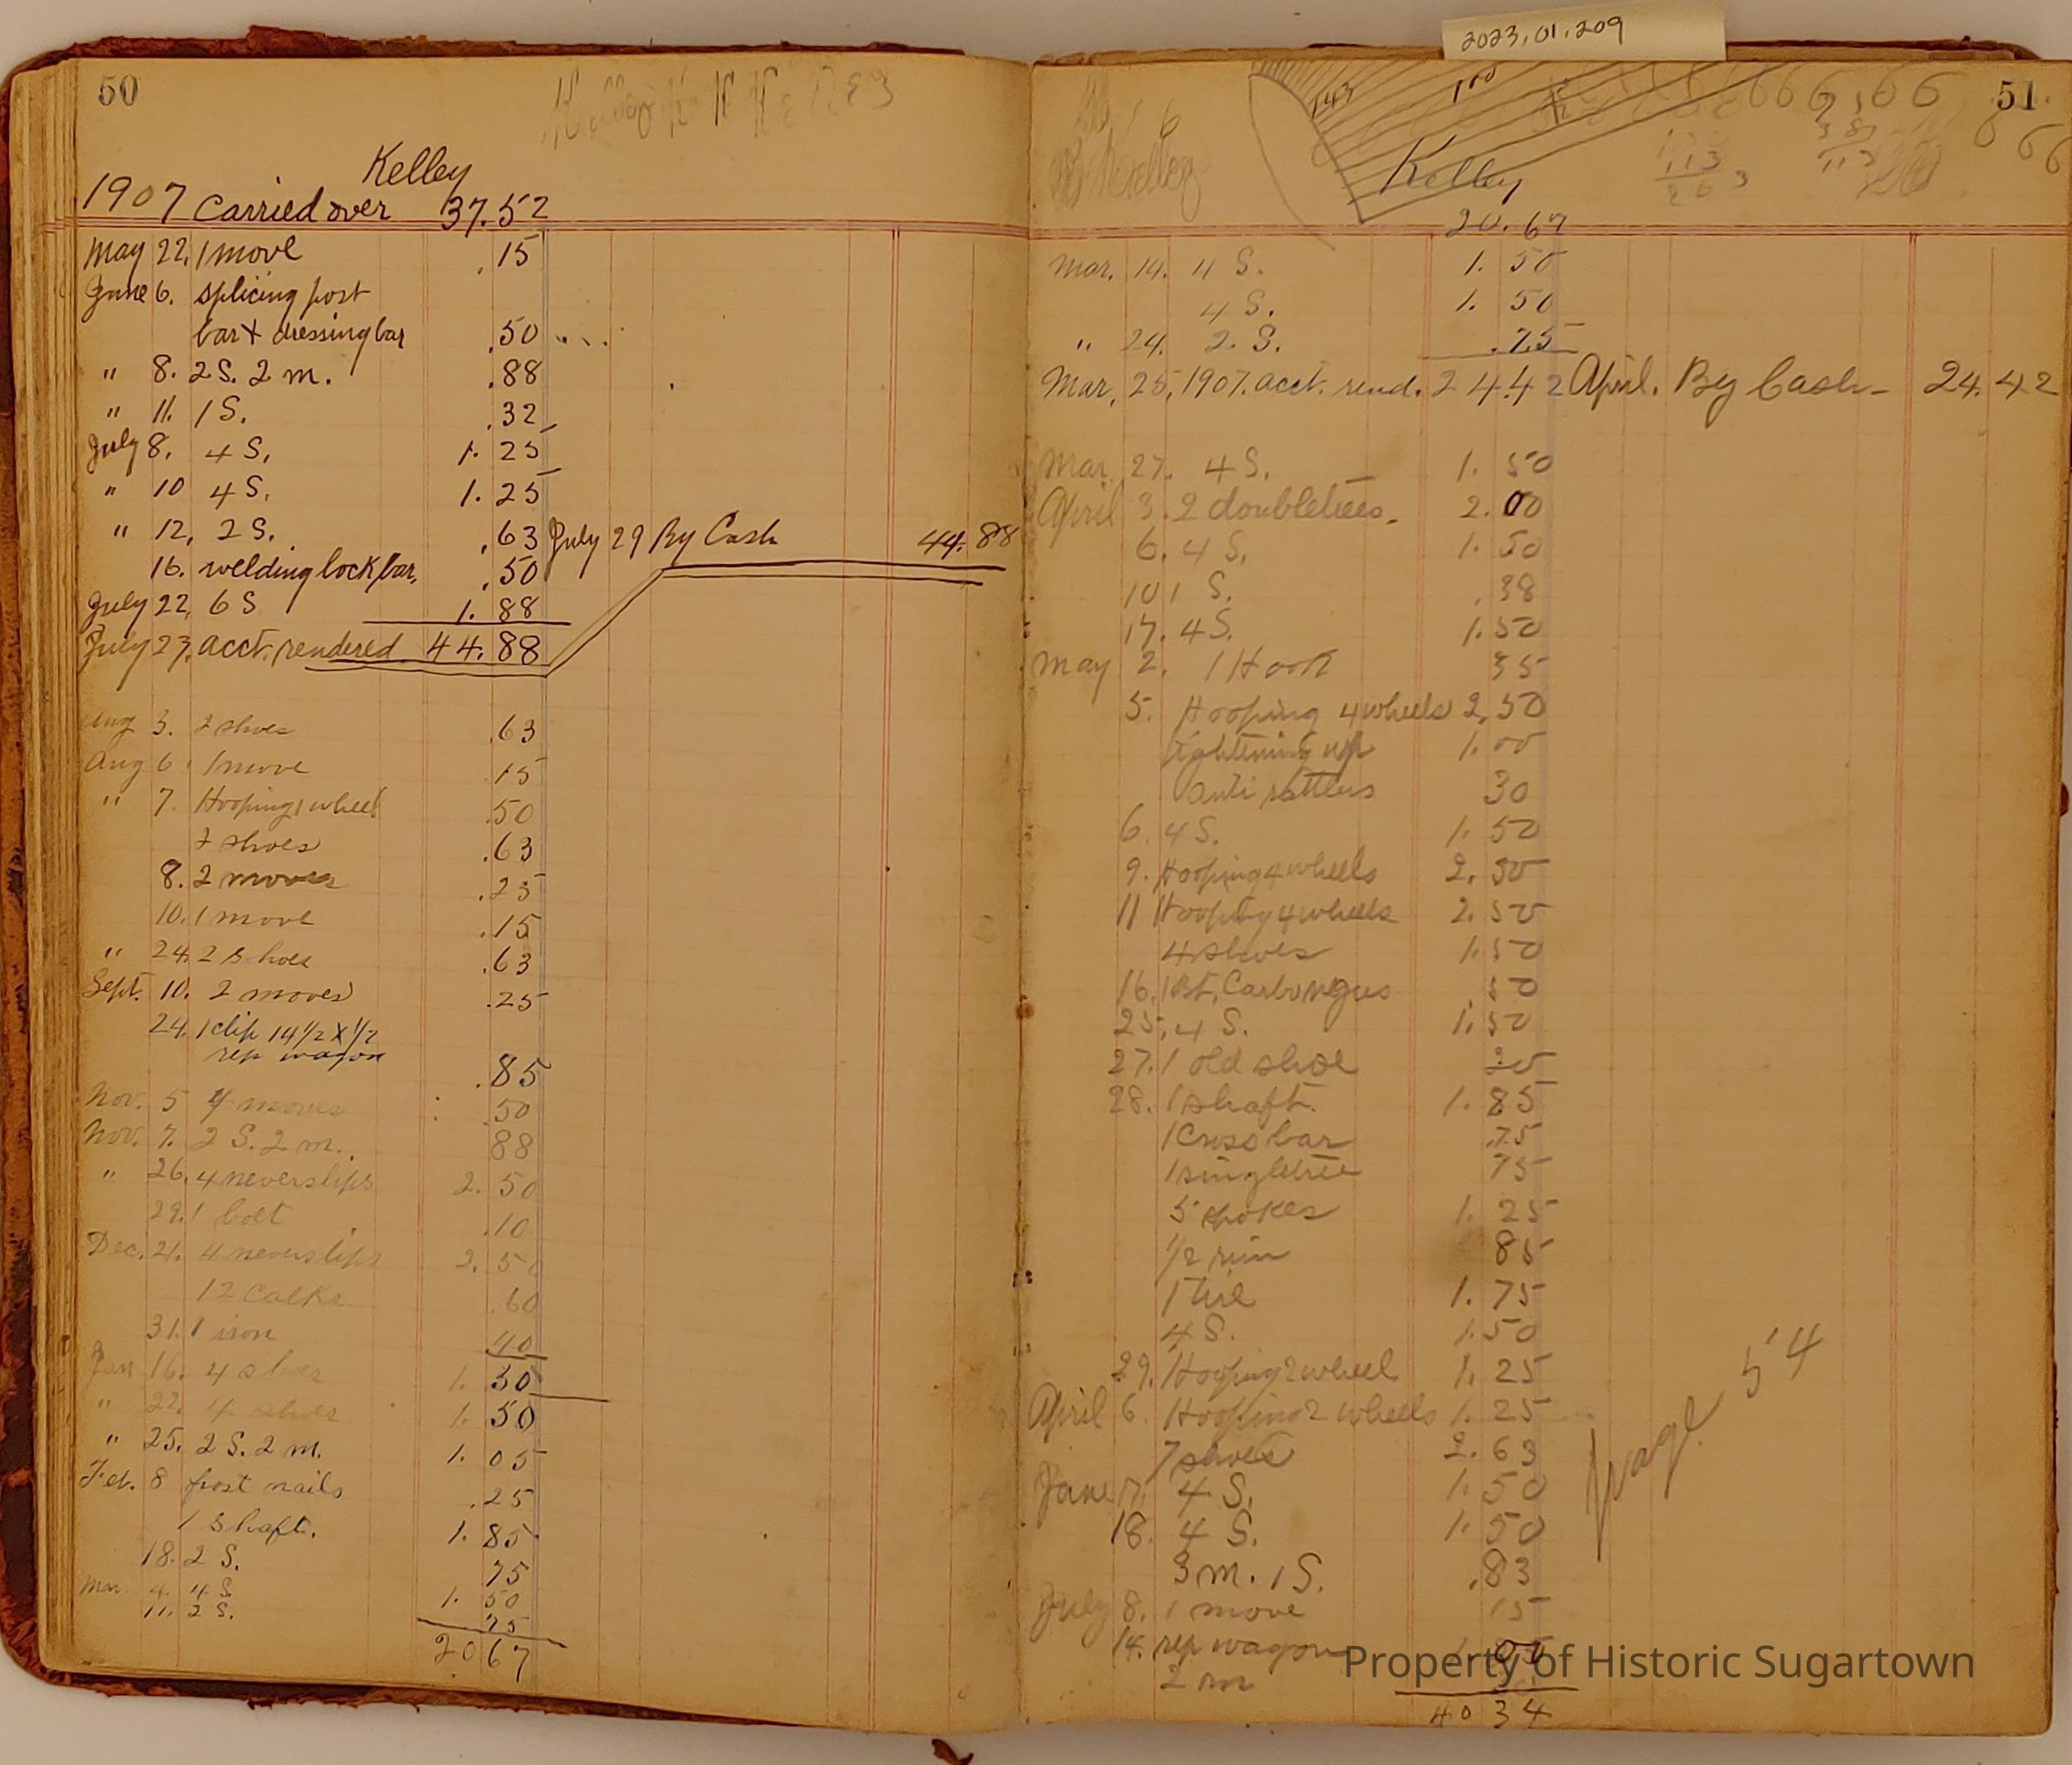 2023.01.209
50
Kelley
1907 Carried over 37.52
May 22. 1 move .15
June 6. splicing post
bar + dressing bar .50
" 8. 2 S. 2 m. .88
" 11. 1 S. .32
July 8. 4 S. 1.25
" 10 4 S. 1.25
" 12. 2 S. .63 July 29 By Cash 44.88
16. welding lock bar. .50
July 22. 6 S 1.88
July 23. acct. rendered 44.88
Aug 3. 2 shoes .63
Aug 6. 1 move .15
" 7. Hooping 1 wheel .50
2 shoes .63
8. 2 moves .25
10. 1 move .15
" 24. 2 shoes .63
Sept. 10. 2 moves .25
24. 1 clip 14 1/2 x 1/2
rep wagon .85
Nov. 5 4 moves .50
Nov. 7. 2 S. 2 m. .88
" 26. 4 neverslips 2.50
29. 1 bolt .10
Dec. 21. 4 neverslips 2.50
12 Calks .60
31. 1 iron 40
Jan 16. 4 shoes 1.50
" 22. 4 shoes 1.50
" 25. 2 S. 2 m. 1.05
Feb. 8 frost nails .25
1 shaft. 1.85
18. 2 S. 75
Mar 4. 4 S. 1.50
11. 2 S. 75
20 67
51
143
100
Kelley
20.67
Mar. 14. 4 S. 1.50
4 S. 1.50
" 24. 2 S. .75
Mar. 25, 1907. acct. rend. 24.42 April. By Cash - 24.42
Mar. 27. 4 S. 1.50
April 3. 2 doubletrees. 2.00
6. 4 S. 1.50
10 1 S. .38
17. 4 S. 1.50
May 2. 1 Hook 35
5. Hooping 4 wheels 2.50
tightening up 1.00
anti rattlers 30
6. 4 S. 1.50
9. Hooping 4 wheels 2.50
11 Hooping 4 wheels 2.50
4 shoes 1.50
16. 1 Bt. 50
25. 4 S. 1.50
27. 1 old shoe 20
28. 1 shaft. 1.85
1 Cross bar .75
1 singletree 75
5 spokes 1.25
1/2 rim 85
1 tire 1.75
4 S. 1.50
29. Hooping 2 wheel 1.25
April 6. Hooping 2 wheels 1.25
7 shoes 2.63
June 17. 4 S. 1.50
18. 4 S. 1.50
3 m. 1 S. .83
July 8. 1 move 15
14. rep wagon
2 m
40 34
page 54
Property of Historic Sugartown